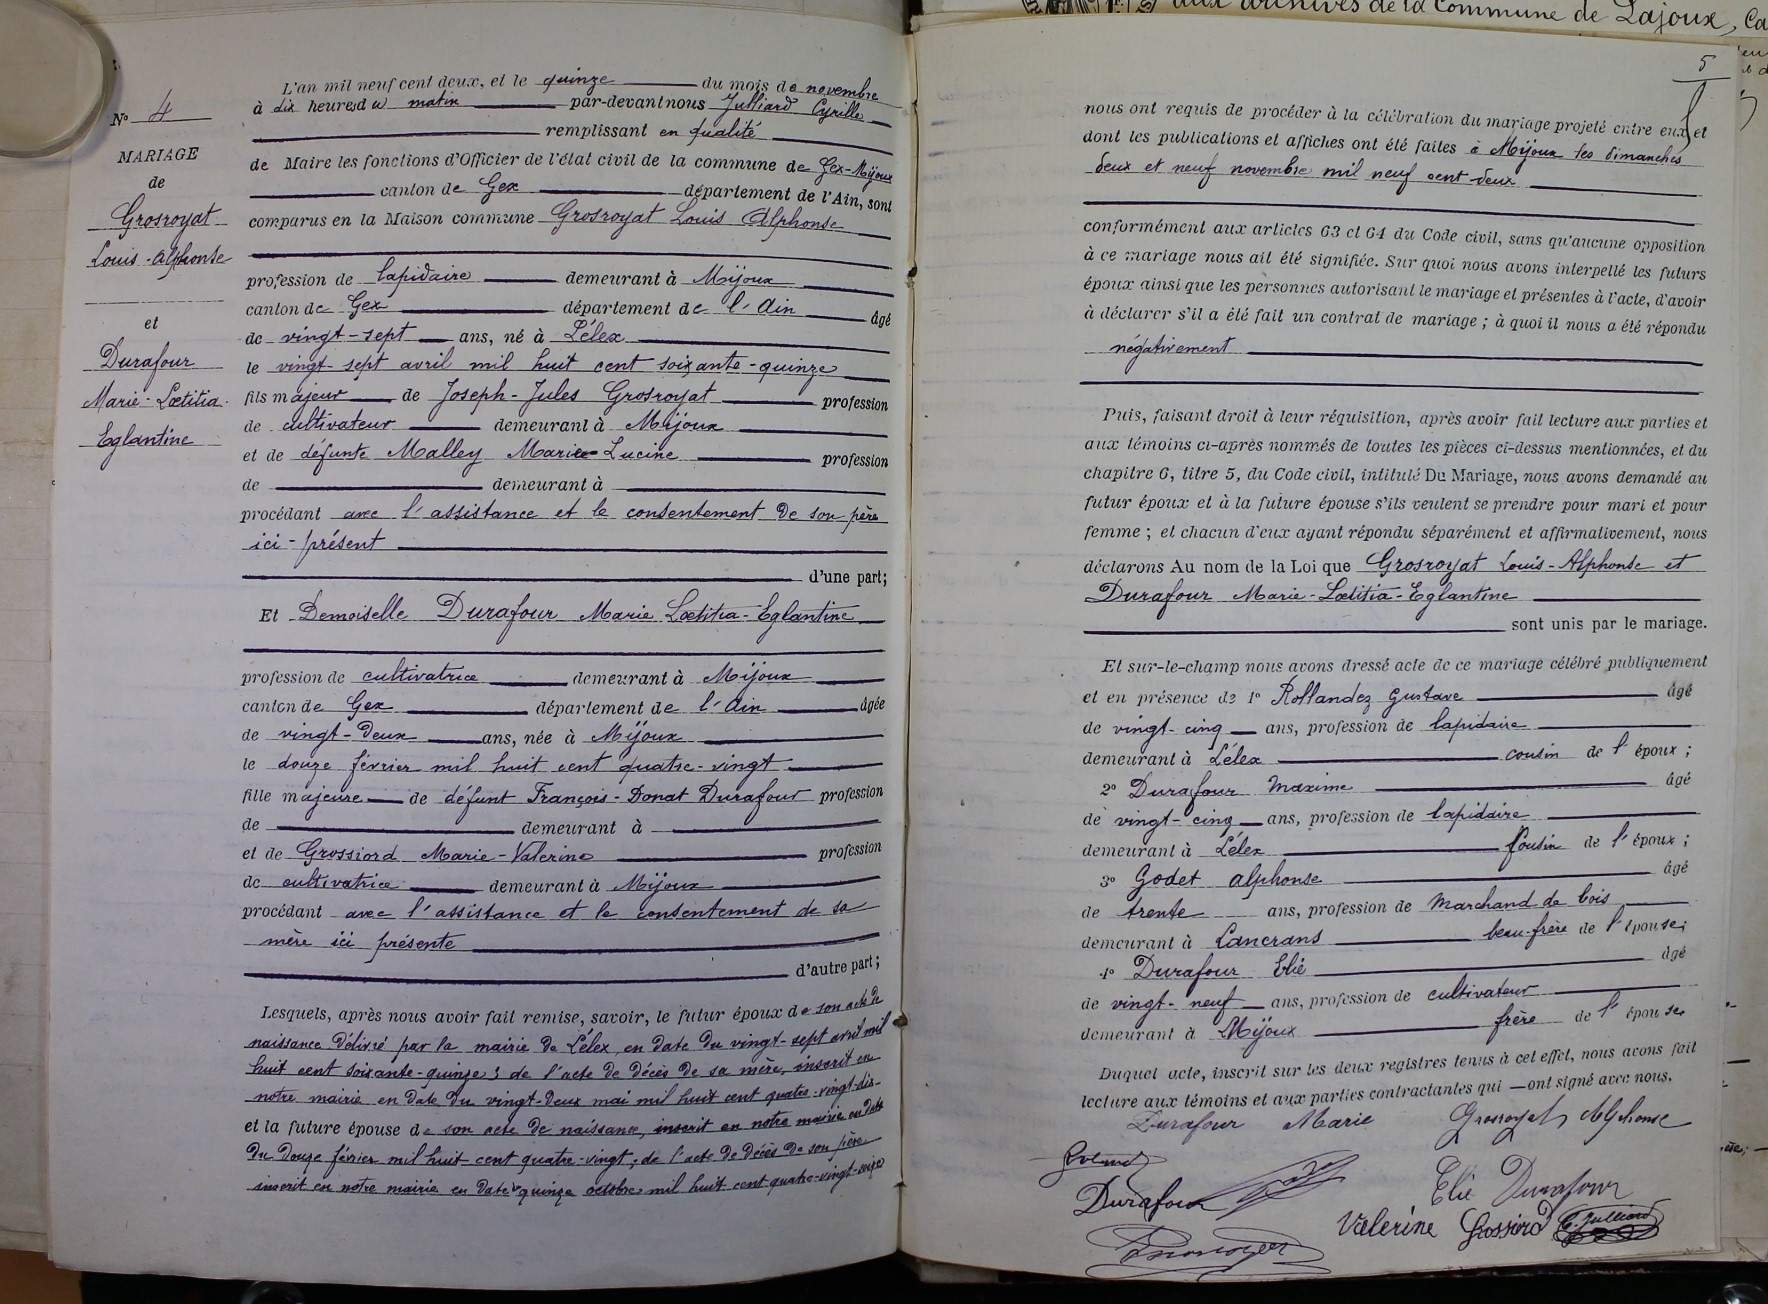 aux archives de la Commune de Lajoux, Ca
N° 4
MARIAGE
de
Grosroyat
Louis-Alphonse
et
Durafour
Marie-Lœtitia-
Eglantine
L'an mil neuf cent deux, et le quinze du mois de novembre
à dix heures du matin par-devant nous Julliard Cyrille
remplissant en qualité
de Maire les fonctions d'Officier de l'état civil de la commune de Gex-Mijoux
canton de Gex département de l'Ain, sont
comparus en la Maison commune Grosroyat Louis Alphonse
profession de lapidaire demeurant à Mijoux
canton de Gex département de l'Ain âgé
de vingt-sept ans, né à Lélex
le vingt-sept avril mil huit cent soixante-quinze
fils majeur de Joseph-Jules Grosroyat profession
de cultivateur demeurant à Mijoux
et de défunte Malley Marie-Lucine profession
de demeurant à
procédant avec l'assistance et le consentement de son père
ici-présent
d'une part;
Et Demoiselle Durafour Marie Lœtitia-Eglantine
profession de cultivatrice demeurant à Mijoux
canton de Gex département de l'Ain âgée
de vingt-deux ans, née à Mijoux
le douze février mil huit cent quatre-vingt
fille majeure de défunt François-Donat Durafour profession
de demeurant à
et de Grossiord Marie-Valerine profession
de cultivatrice demeurant à Mijoux
procédant avec l'assistance et le consentement de sa
mère ici présente
d'autre part;
Lesquels, après nous avoir fait remise, savoir, le futur époux de son acte de
naissance délivré par la mairie de Lélex, en date du vingt-sept avril mil
huit cent soixante-quinze; de l'acte de décès de sa mère, inscrit en
notre mairie en date du vingt-deux mai mil huit cent quatre-vingt-dix-
et la future épouse de son acte de naissance, inscrit en notre mairie en date
du douze février mil huit-cent quatre-vingt; de l'acte de décès de son père
inscrit en notre mairie en date quinze octobre mil huit cent quatre-vingt-seize
5
nous ont requis de procéder à la célébration du mariage projeté entre eux et
dont les publications et affiches ont été faites à Mijoux les dimanches
deux et neuf novembre mil neuf cent-deux
conformément aux articles 63 et 64 du Code civil, sans qu'aucune opposition
à ce mariage nous ait été signifiée. Sur quoi nous avons interpellé les futurs
époux ainsi que les personnes autorisant le mariage et présentes à l'acte, d'avoir
à déclarer s'il a été fait un contrat de mariage; à quoi il nous a été répondu
négativement
Puis, faisant droit à leur réquisition, après avoir fait lecture aux parties et
aux témoins ci-après nommés de toutes les pièces ci-dessus mentionnées, et du
chapitre 6, titre 5, du Code civil, intitulé Du Mariage, nous avons demandé au
futur époux et à la future épouse s'ils veulent se prendre pour mari et pour
femme; et chacun d'eux ayant répondu séparément et affirmativement, nous
déclarons Au nom de la Loi que Grosroyat Louis-Alphonse et
Durafour Marie-Lœtitia-Eglantine
sont unis par le mariage.
Et sur-le-champ nous avons dressé acte de ce mariage célébré publiquement
et en présence de 1° Rollandez Gustave âgé
de vingt-cinq ans, profession de lapidaire
demeurant à Lélex cousin de l'époux;
2° Durafour Maxime âgé
de vingt-cinq ans, profession de lapidaire
demeurant à Lélex Cousin de l'époux;
3° Godet Alphonse âgé
de trente ans, profession de Marchand de bois
demeurant à Lancrans beau-frère de l'épouse;
4° Durafour Elie âgé
de vingt-neuf ans, profession de cultivateur
demeurant à Mijoux frère de l'épouse
Duquel acte, inscrit sur les deux registres tenus à cet effet, nous avons fait
lecture aux témoins et aux parties contractantes qui ont signé avec nous.
Durafour Marie Grosroyat Alphonse
Durafour Elie Durafour
Valerine Grossiord C. Julliard